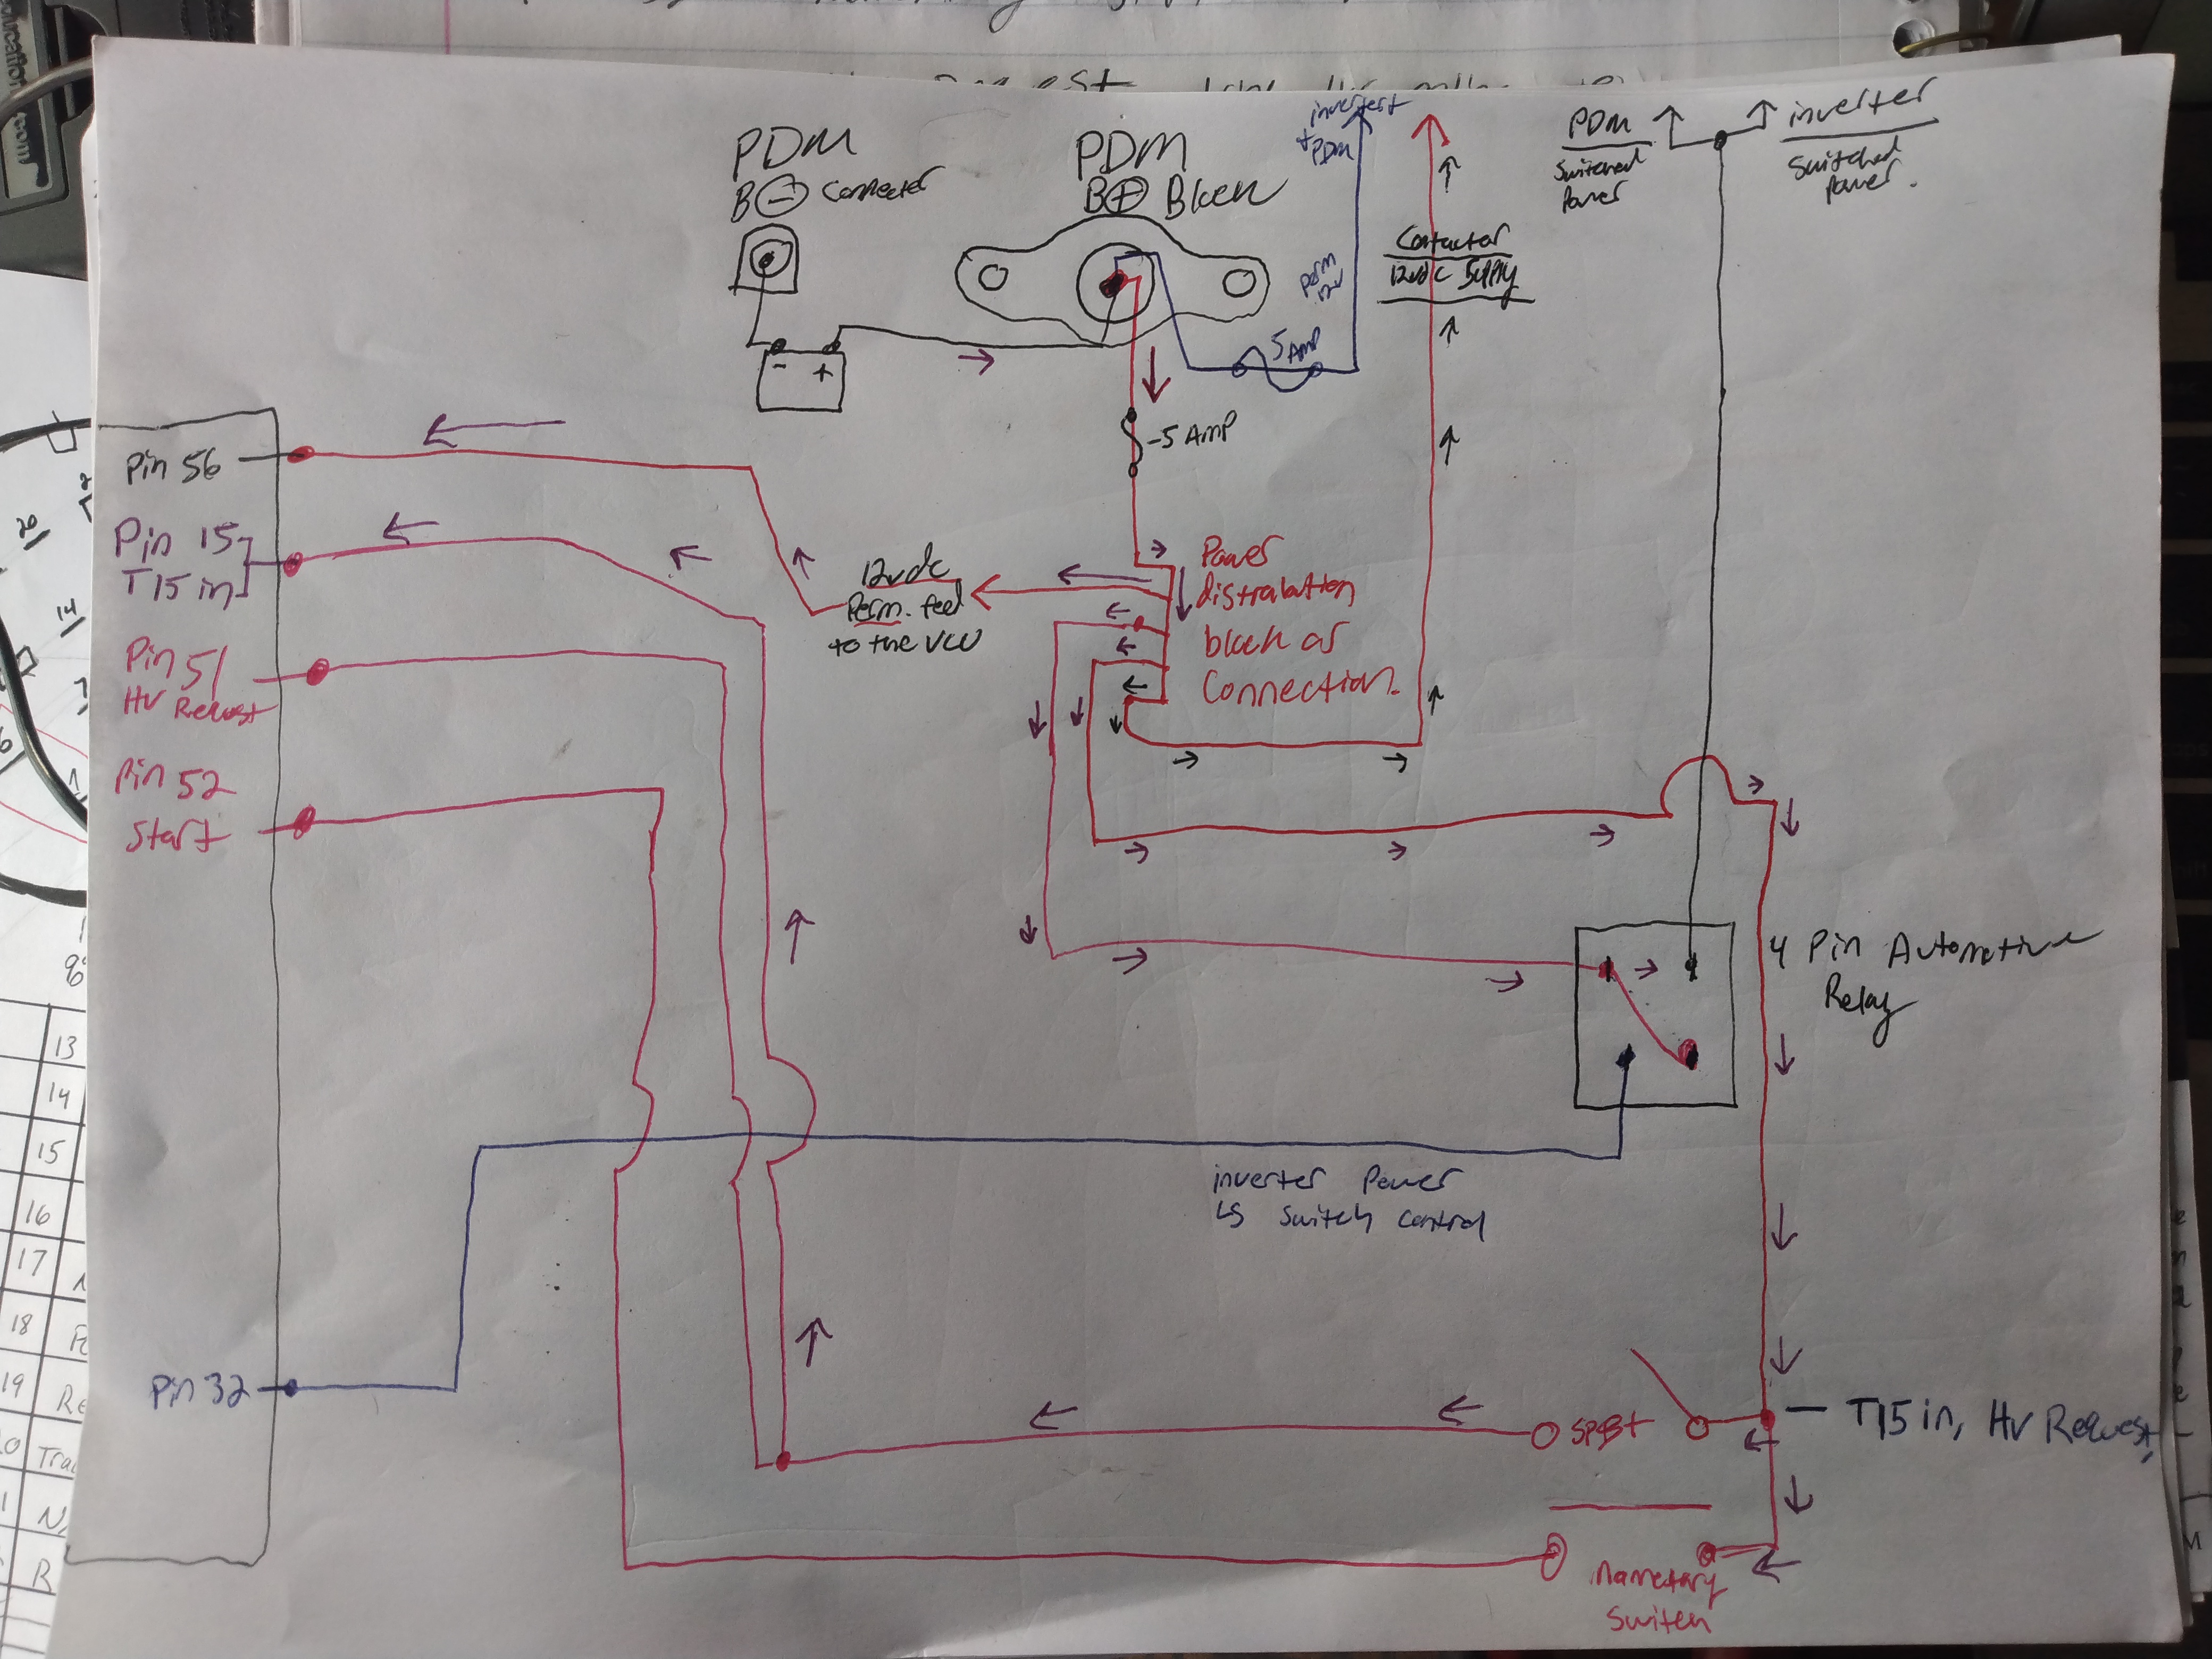 PDM
B⊖ Connecter
PDM
B⊕ Block
inverter +
+ PDM
perm
12v
5 AMP
Contactor
12vdc Supply
PDM
Switched
Power
inverter
Switched
Power.
- +
-5 AMP
Pin 56
Pin 15
T15 in
Pin 51
HV Request
Pin 52
Start
Pin 32
12vdc
Perm. feed
to the VCU
Power
distrabution
block or
Connection.
4 Pin Automotive
Relay
inverter Power
LS Switch Control
SPST
T15 in, HV Request,
Mametary
Switch
20
14
13
14
15
16
17
18
19
Trac
R